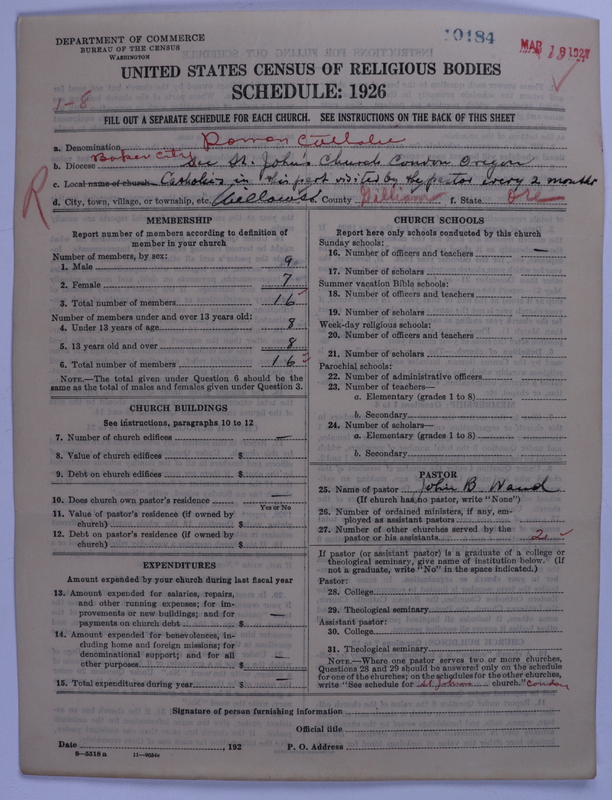 DEPARTMENT OF COMMERCE
BUREAU OF THE CENSUS
WASHINGTON
10184
MAR 18 1927
UNITED STATES CENSUS OF RELIGIOUS BODIES
SCHEDULE: 1926
1-8
FILL OUT A SEPARATE SCHEDULE FOR EACH CHURCH. SEE INSTRUCTIONS ON THE BACK OF THIS SHEET
a. Denomination Roman Catholic
b. Diocese Baker City See St. John's Church Condon Oregon
c. Local name of church Catholics in this part visited by the pastor every 2 months
R
d. City, town, village, or township, etc. County Gilliam f. State Ore
MEMBERSHIP
Report number of members according to definition of member in your church
Number of members, by sex:
1. Male 9
2. Female 7
3. Total number of members 16
Number of members under and over 13 years old:
4. Under 13 years of age 8
5. 13 years old and over 8
6. Total number of members 16
NOTE.—The total given under Question 6 should be
same as the total of males and females given under Question 3.
CHURCH BUILDINGS
See instructions, paragraphs 10 to 12
7. Number of church edifices —
8. Value of church edifices $
9. Debt on church edifices $
10. Does church own pastor's residence —
Yes or No
11. Value of pastor's residence (if owned by
church) $
12. Debt on pastor's residence (if owned by
church) $
EXPENDITURES
Amount expended by your church during last fiscal year
13. Amount expended for salaries, repairs,
and other running expenses; for im-
provements or new buildings; and for
payments on church debt $ —
14. Amount expended for benevolences, in-
cluding home and foreign missions; for
denominational support; and for all
other purposes $ —
15. Total expenditures during year $ —
CHURCH SCHOOLS
Report here only schools conducted by this church
Sunday schools:
16. Number of officers and teachers —
17. Number of scholars
Summer vacation Bible schools:
18. Number of officers and teachers
19. Number of scholars
Week-day religious schools:
20. Number of officers and teachers
21. Number of scholars
Parochial schools:
22. Number of administrative officers
23. Number of teachers—
a. Elementary (grades 1 to 8)
b. Secondary
24. Number of scholars—
a. Elementary (grades 1 to 8)
b. Secondary
PASTOR
25. Name of pastor John B Wand
(If church has no pastor, write "None")
26. Number of ordained ministers, if any, em-
ployed as assistant pastors
27. Number of other churches served by the
pastor or his assistants 2
If pastor (or assistant pastor) is a graduate of a college or
theological seminary, give name of institution below. (If
not a graduate, write "No" in the space indicated.)
Pastor:
28. College
29. Theological seminary
Assistant pastor:
30. College
31. Theological seminary
NOTE.—Where one pastor serves two or more churches,
Questions 28 and 29 should be answered only on the schedule
for one of the churches; on the schedules for the other churches,
write "See schedule for St Johns church." Condon
Signature of person furnishing information
Official title
Date , 192 P. O. Address
8-5518 a